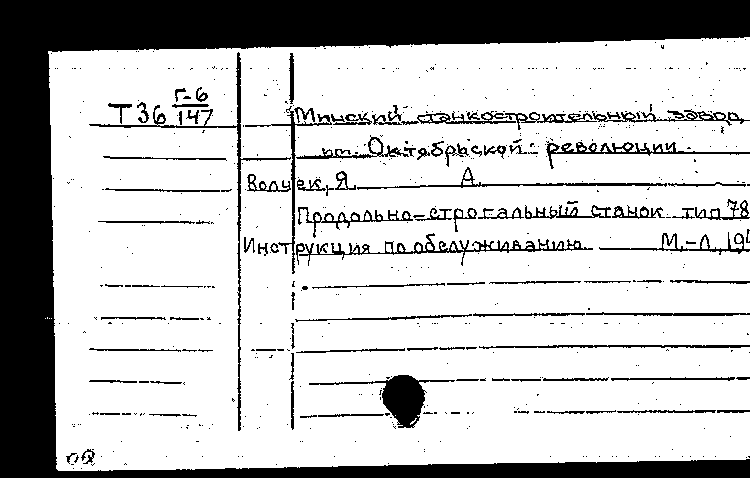 Г-6
Т 36 147
Минский станкостроительный завод
им. Октябрьской революции.
Волчек, Я. А.
Продольно-строгальный станок тип 78
Инструкция по обслуживанию. М.-Л., 19